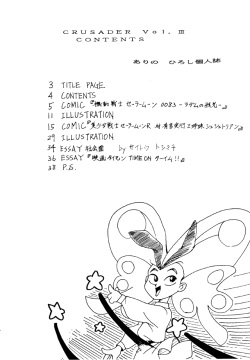 CRUSADER Vol. III
CONTENTS
ありの ひろし個人誌
3 TITLE PAGE
4 CONTENTS
5 COMIC『機動戦士セーラームーン 0083 -ラダムの残光-
11 ILLUSTRATION
15 COMIC『美少女戦士セーラームーンR 対 有言実行三姉妹シュシュトリアン』
29 ILLUSTRATION
34 ESSAY by サイトウ トシミチ
36 ESSAY『映画 TIME ON タイム!!』
38 P.S.